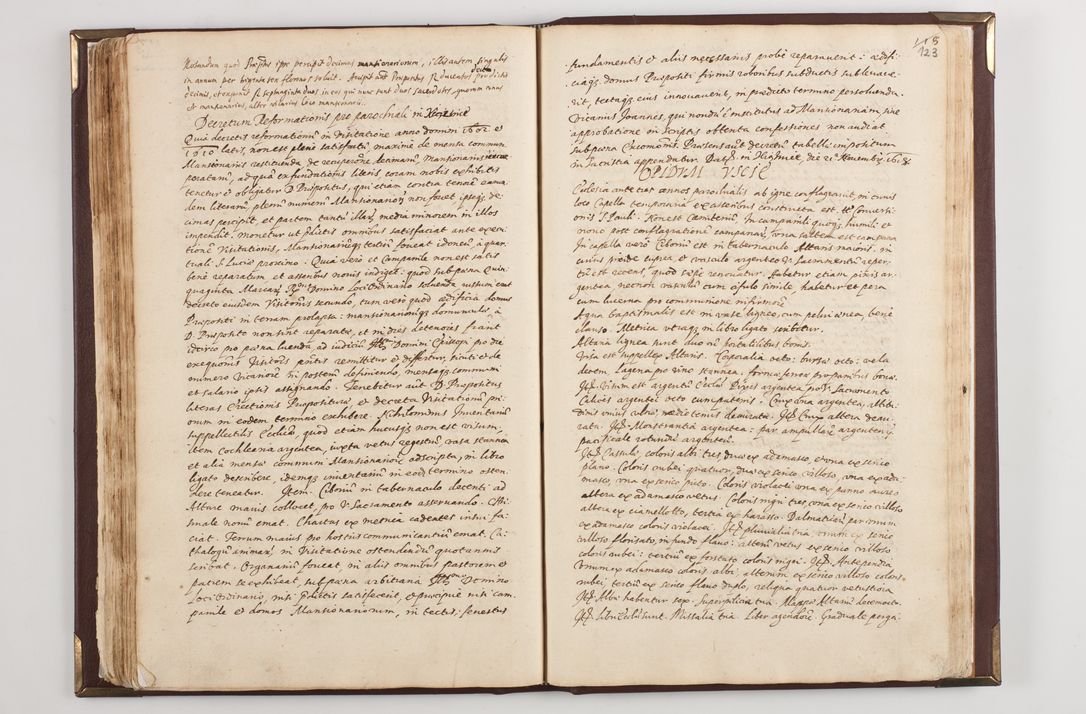 Notandum quod Præpositus ipse percipit decimas mansionariorum, illis autem singulis
in annum per viginti sex florenos soluit. Percipit autem Præpositus fl ducentos
decimis, et expendit fl septuaginta duos in eos qui nunc sunt duo sacerdotes, quorum unus
est mansionarius, alter vicarius loco mansionarii.
Decretum Reformationis pro parochiali in
Quia decretis reformationum in visitatione anno domini 1602 et
1610 latis, non est plene satisfactum, maxime de mensa communi
Mansionariis restituenda, de recuperatione decimarum, Mansionariis incor
poratarum, ad quæ ex fundationis literis coram nobis exhibitis
tenetur et obligatur D. Præpositus, qui etiam contra tenorem earum
dem literarum, plenum numerum Mansionariorum non fovet, ipse de
cimas percipit, et partem tantum illarum media minorem in illos
impendit. Monetur ut prædictis omnibus satisfaciat ante execu
tionem Visitationis, Mansionarium tertium foveat idoneum, a quar
tuali S. Luciæ proximo. Quia vero et Campanile non est satis
bene reparatum et asseribus novis indiget: quod sub pœna quin
quaginta Marcarum Rmo Domino Loci Ordinario soluenda iussum erat
decreto eiusdem Visitationis secundo, cum vero quod ædificia domus
Præpositi in tectis prolapsa: mansionariorum domuncula, a
D. Præposito non sint reparata, et in dies deteriora fiant
idcirco pro pœna luenda ad iudicium Illmi Domini Episcopi pro die
executionis Visitationis remittitur et differtur, sicuti et de
numero Vicariorum in posterum definiendo, mensaque communi
et salario ipsis assignando. Tenebitur autem D. Præpositus
literas Erectionis Præpositurae et decreta Visitationum pri
orum in eodem termino exhibere. Nihilominus Inventarium
suppellectilis Ecclesiæ, quod etiam hucusque non est visum,
item cochleana argentea, iuxta vetus regestrum, vasa stannea
et alia mensæ communi Mansionariorum adscripta, in libro
ligato describere, idemque inventarium in eodem termino osten
dere teneatur. Item. Ciborium in tabernaculo decenti ad
Altare maius collocet, pro V. Sacramento asseruando.
male novum emat. Chartas ex metrica cadentes insui fa
ciat. Torum maius pro hostiis communicantium emat. Ca
thalogum animarum in Visitatione ostendendum quotannis
scribat. Organarium foveat, in aliis omnibus pastorem et
patrem se exhibeat, sub pœna arbitraria Illmo Domino
Loci Ordinario, nisi prædictis satisfecerit, et præcipue nisi cam
panile et domos Mansionariorum, in tectis, fenestris
118
123
fundamentis et aliis necessariis probe reparauerit: ædifi
ciaque domus Præpositi firmis roboribus subductis subleuaue
rit, tectaque eius innouauerit, in prædicto termino persoluenda.
Vicarius Joannes, qui nondum est institutus ad Mansionariam, sine
approbatione in scriptis obtenta confessiones non audiat
sub pœna excommunicationis. Præsens autem decretum tabellæ impositum
in sacristia appendatur. Datum in die 21 Novembris 1618
OPIDUM USCIE
Ecclesia ante tres annos parochialis ab igne conflagrauit, in cuius
loco Capella temporaria ex asseribus constructa est, tt Conuersi
onis S. Pauli. Non est Cæmiterium. In campanili quoque humili et
ratione post conflagratione campanarum, una saltem est campana
In capella vero Ciborium est in tabernaculo Altaris maioris, in
cuius pixide cuprea et vasculo argenteo V. Sacramentum reper
tum est recens, quod sæpe renouatur. Habetur etiam pixis ar
gentea necnon vasculum cum cipulo simile, habetur et pera
cum lucerna pro communione infirmorum
Aqua baptismalis est in vase ligneo, cum pelui ænea, bene
clauso. Metrica utraque in libro ligato scribitur.
Altaria lignea sunt duo cum portatilibus bonis.
Visa est suppellex Altaris. Corporalia octo: bursæ octo: vela
decem. Lagena pro vino stannea: forma ferrea pro panibus bona.
Item. Visum est argentum Ecclesiæ. Pixis argentea pro V. Sacramento
Calices argentei octo cum patenis. Crux una argentea, altitu
dinis unius ulnæ, mediotenus deaurata. Item Crux altera deau
rata. Item Monstrantia argentea: par ampullarum argentearum
pacificale rotundum argenteum.
Item Casulæ, coloris albi tres, duæ ex adamasco, et una ex serico
plano. Coloris rubei quatuor, duæ ex serico villoso, una ex ada
masco, una ex serico picto. Coloris violacei una ex panno aureo
altera ex adamasco vetus. Coloris nigri tres, una ex serico villoso
altera ex ciamelloto, tertia ex harasso. Dalmaticarum par unum
ex adamasco coloris violacei. Item pluuialia tria, unum ex serico
villoso florizato, in fundo flauo: alterum vetus ex serico villoso
coloris rubei: tertium ex fostato coloris nigri. Item Antependia
Unum ex adamasco coloris albi, alterum ex serico villoso coloris
rubei, tertium ex serico flauo duplo, reliqua quatuor vetustiora
Item Albæ habentur sex. Superpellicia tria. Mappæ Altarium decem octo.
Item Libri Ecclesiæ sunt. Missalia tria. Liber agendorum. Graduale perga-